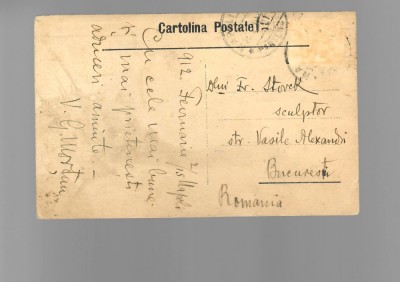 Cartolina Postale
912 Februarie
Cu cele mai bune
și mai prietenești
aduceri aminte. –
V. G. Morțun
Dlui Fr. Storck
sculptor
str. Vasile Alexandri
București
Romania